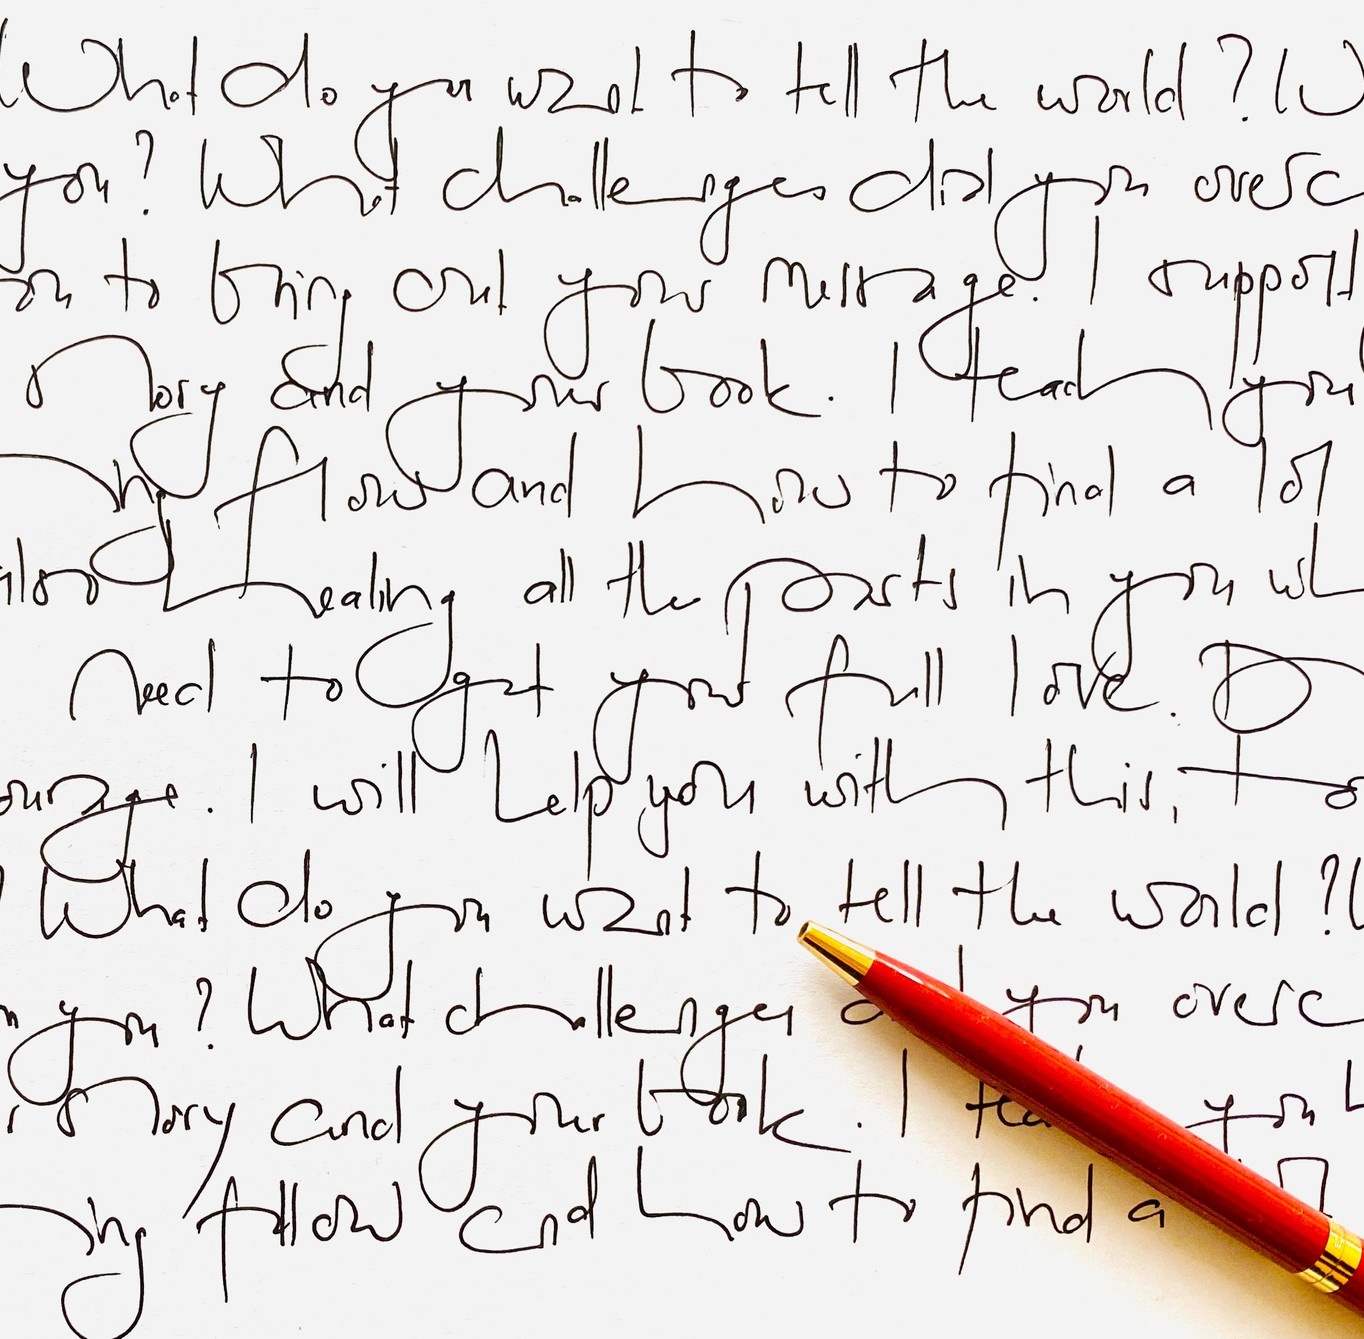 What do you want to tell the world? W
you? What challenges did you overc
you to bring out your message. I support
story and your book. I teach you
ing flow and how to find a lot
also healing all the parts in you wh
need to get your full love. D
ourage. I will help you with this, to
? What do you want to tell the world?
in you? What challenges you overc
r story and your book. I tea you h
ing flow and how to find a